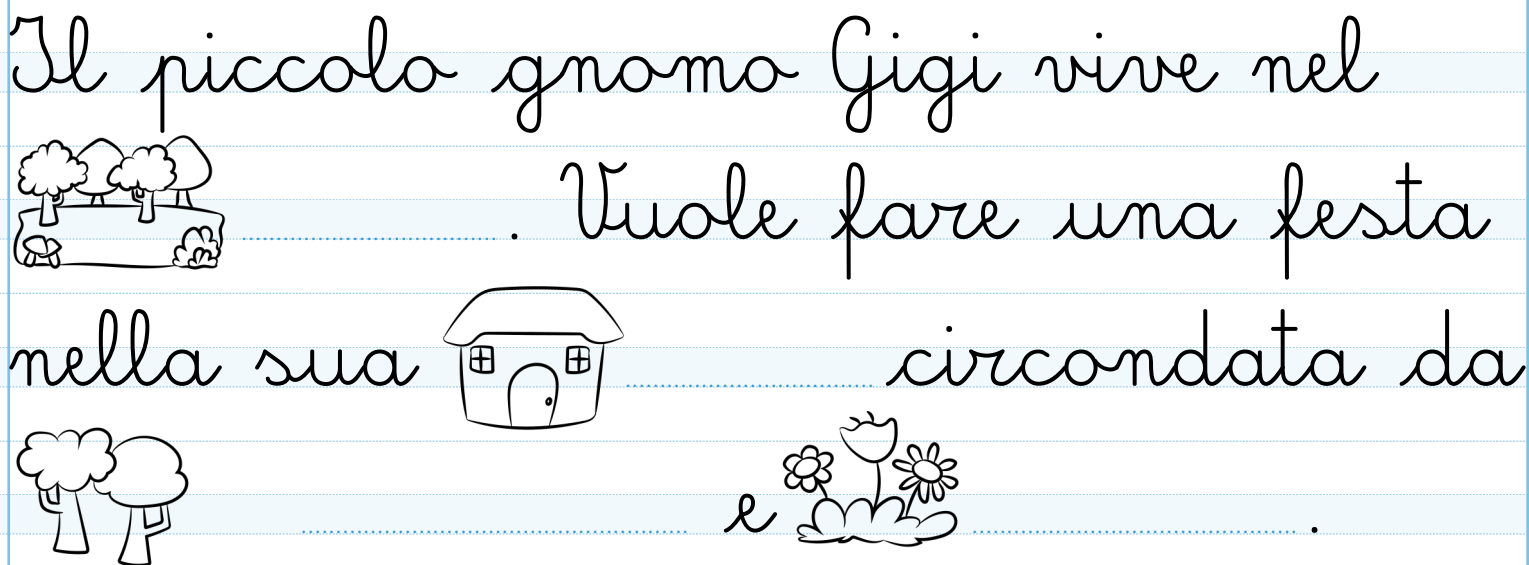 Il piccolo gnomo Gigi vive nel
. Vuole fare una festa
nella sua circondata da
e .